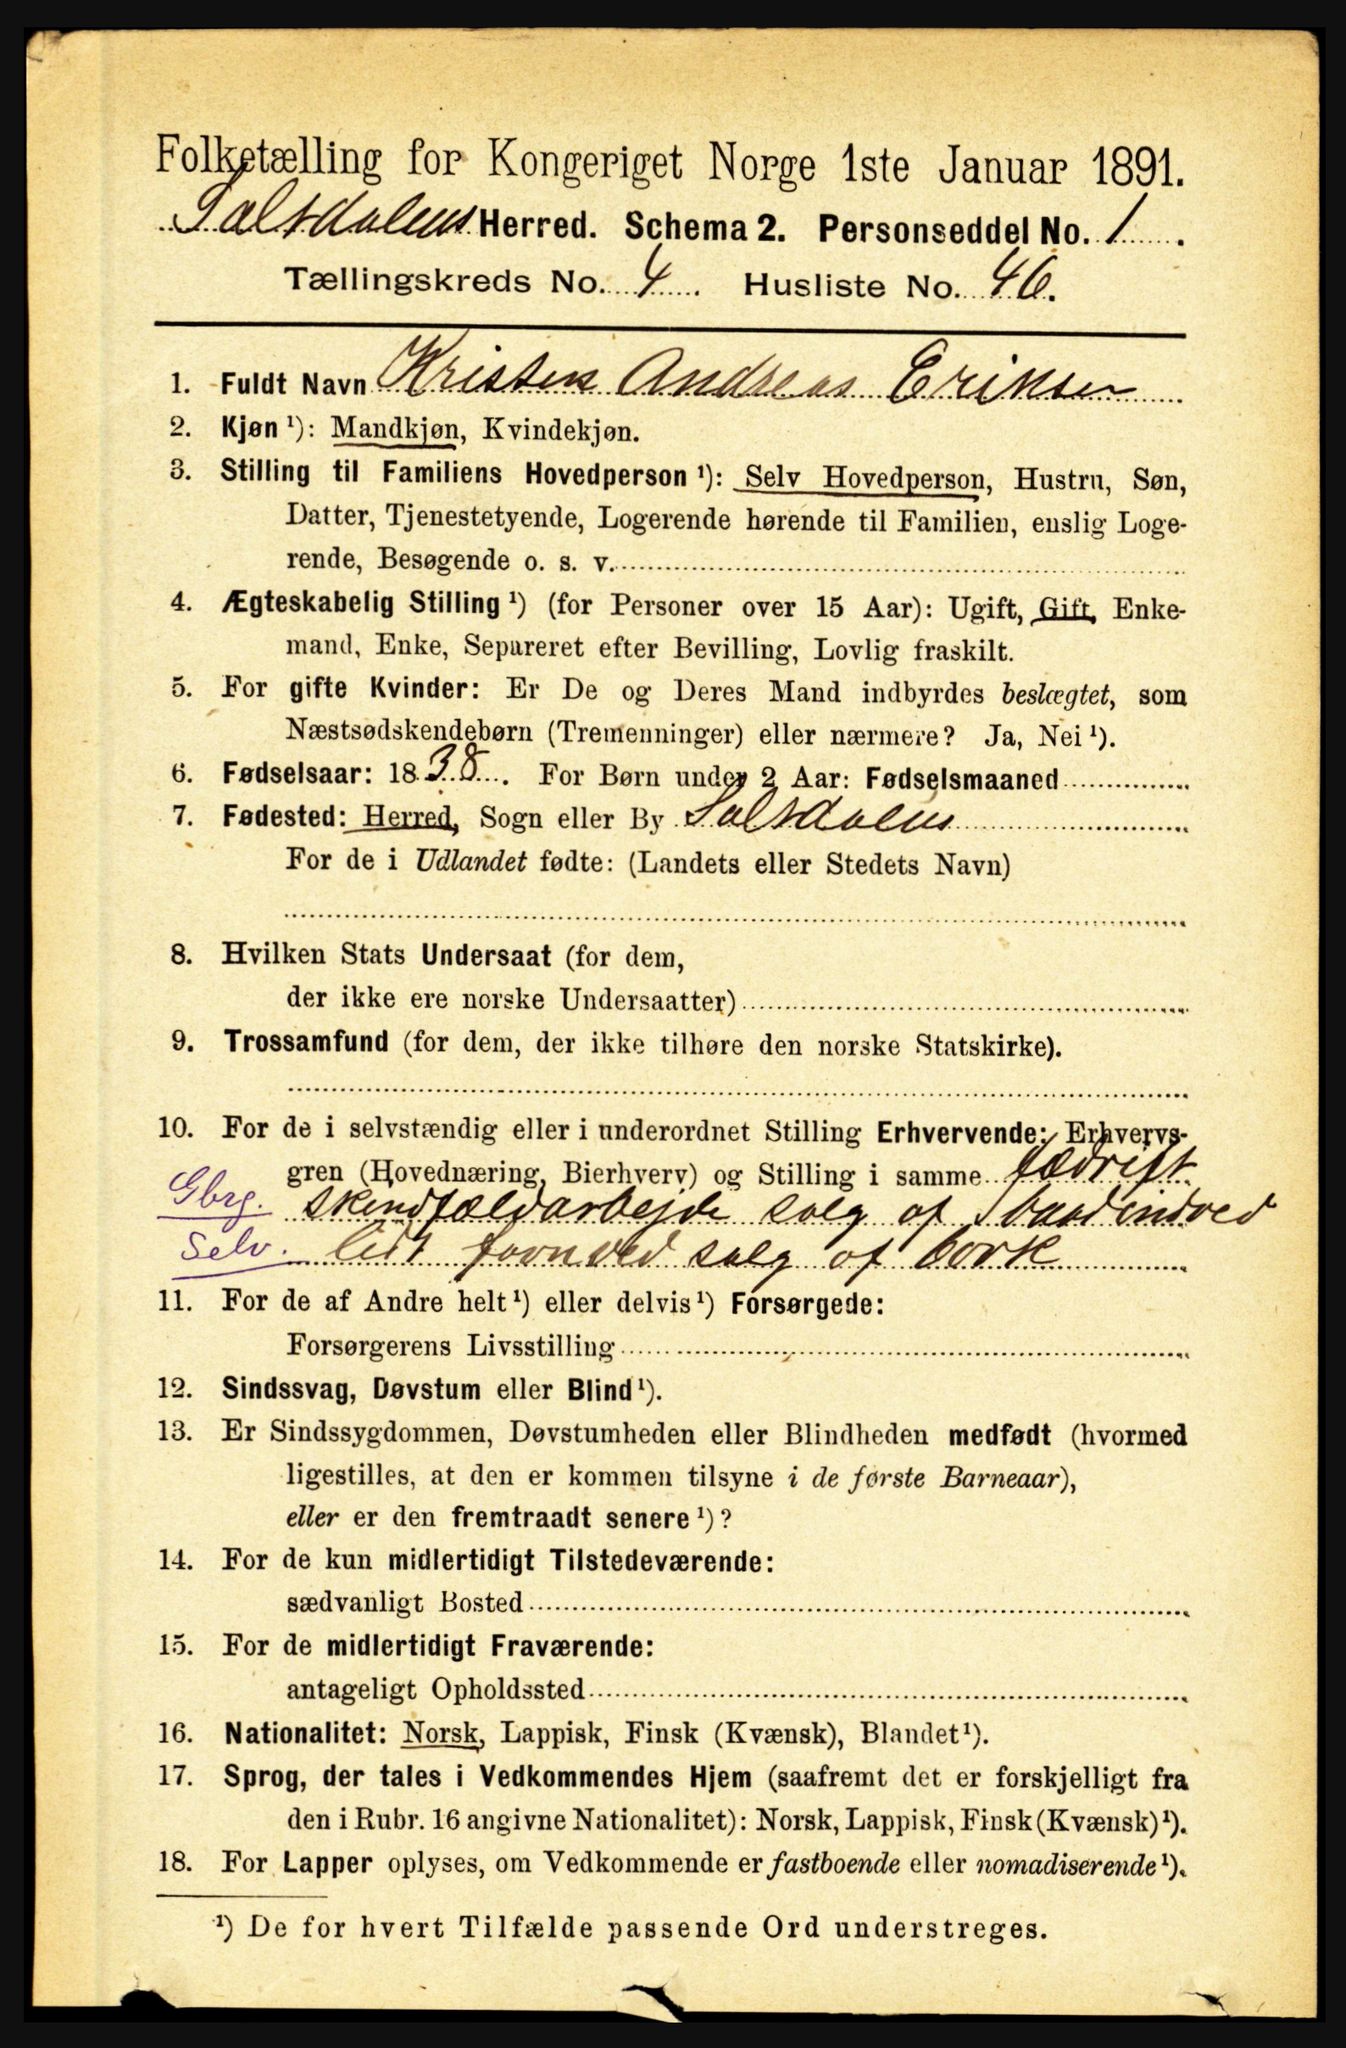 Folketælling for Kongeriget Norge 1ste Januar 1891.
Saltdalens Herred. Schema 2. Personseddel No. 1.
Tællingskreds No. 4. Husliste No. 46.
1. Fuldt Navn Kristen Andreas Eriksen
2. Kjøn ¹): Mandkjøn, Kvindekjøn.
3. Stilling til Familiens Hovedperson ¹): Selv Hovedperson, Hustru, Søn,
Datter, Tjenestetyende, Logerende hørende til Familien, enslig Loge-
rende, Besøgende o. s. v.
4. Ægteskabelig Stilling ¹) (for Personer over 15 Aar): Ugift, Gift, Enke-
mand, Enke, Separeret efter Bevilling, Lovlig fraskilt.
5. For gifte Kvinder: Er De og Deres Mand indbyrdes beslægtet, som
Næstsødskendebørn (Tremenninger) eller nærmere? Ja, Nei ¹).
6. Fødselsaar: 1838. For Børn under 2 Aar: Fødselsmaaned
7. Fødested: Herred, Sogn eller By Saltdalens
For de i Udlandet fødte: (Landets eller Stedets Navn)
8. Hvilken Stats Undersaat (for dem,
der ikke ere norske Undersaatter)
9. Trossamfund (for dem, der ikke tilhøre den norske Statskirke).
10. For de i selvstændig eller i underordnet Stilling Erhvervende: Erhvervs-
gren (Hovednæring, Bierhverv) og Stilling i samme fædrift
Gbrg. skindfældarbejde salg af
Selv. lidt favneved salg af bork
11. For de af Andre helt ¹) eller delvis ¹) Forsørgede:
Forsørgerens Livsstilling
12. Sindssvag, Døvstum eller Blind ¹).
13. Er Sindssygdommen, Døvstumheden eller Blindheden medfødt (hvormed
ligestilles, at den er kommen tilsyne i de første Barneaar),
eller er den fremtraadt senere ¹)?
14. For de kun midlertidigt Tilstedeværende:
sædvanligt Bosted
15. For de midlertidigt Fraværende:
antageligt Opholdssted
16. Nationalitet: Norsk, Lappisk, Finsk (Kvænsk), Blandet ¹).
17. Sprog, der tales i Vedkommendes Hjem (saafremt det er forskjelligt fra
den i Rubr. 16 angivne Nationalitet): Norsk, Lappisk, Finsk (Kvænsk) ¹).
18. For Lapper oplyses, om Vedkommende er fastboende eller nomadiserende ¹).
¹) De for hvert Tilfælde passende Ord understreges.